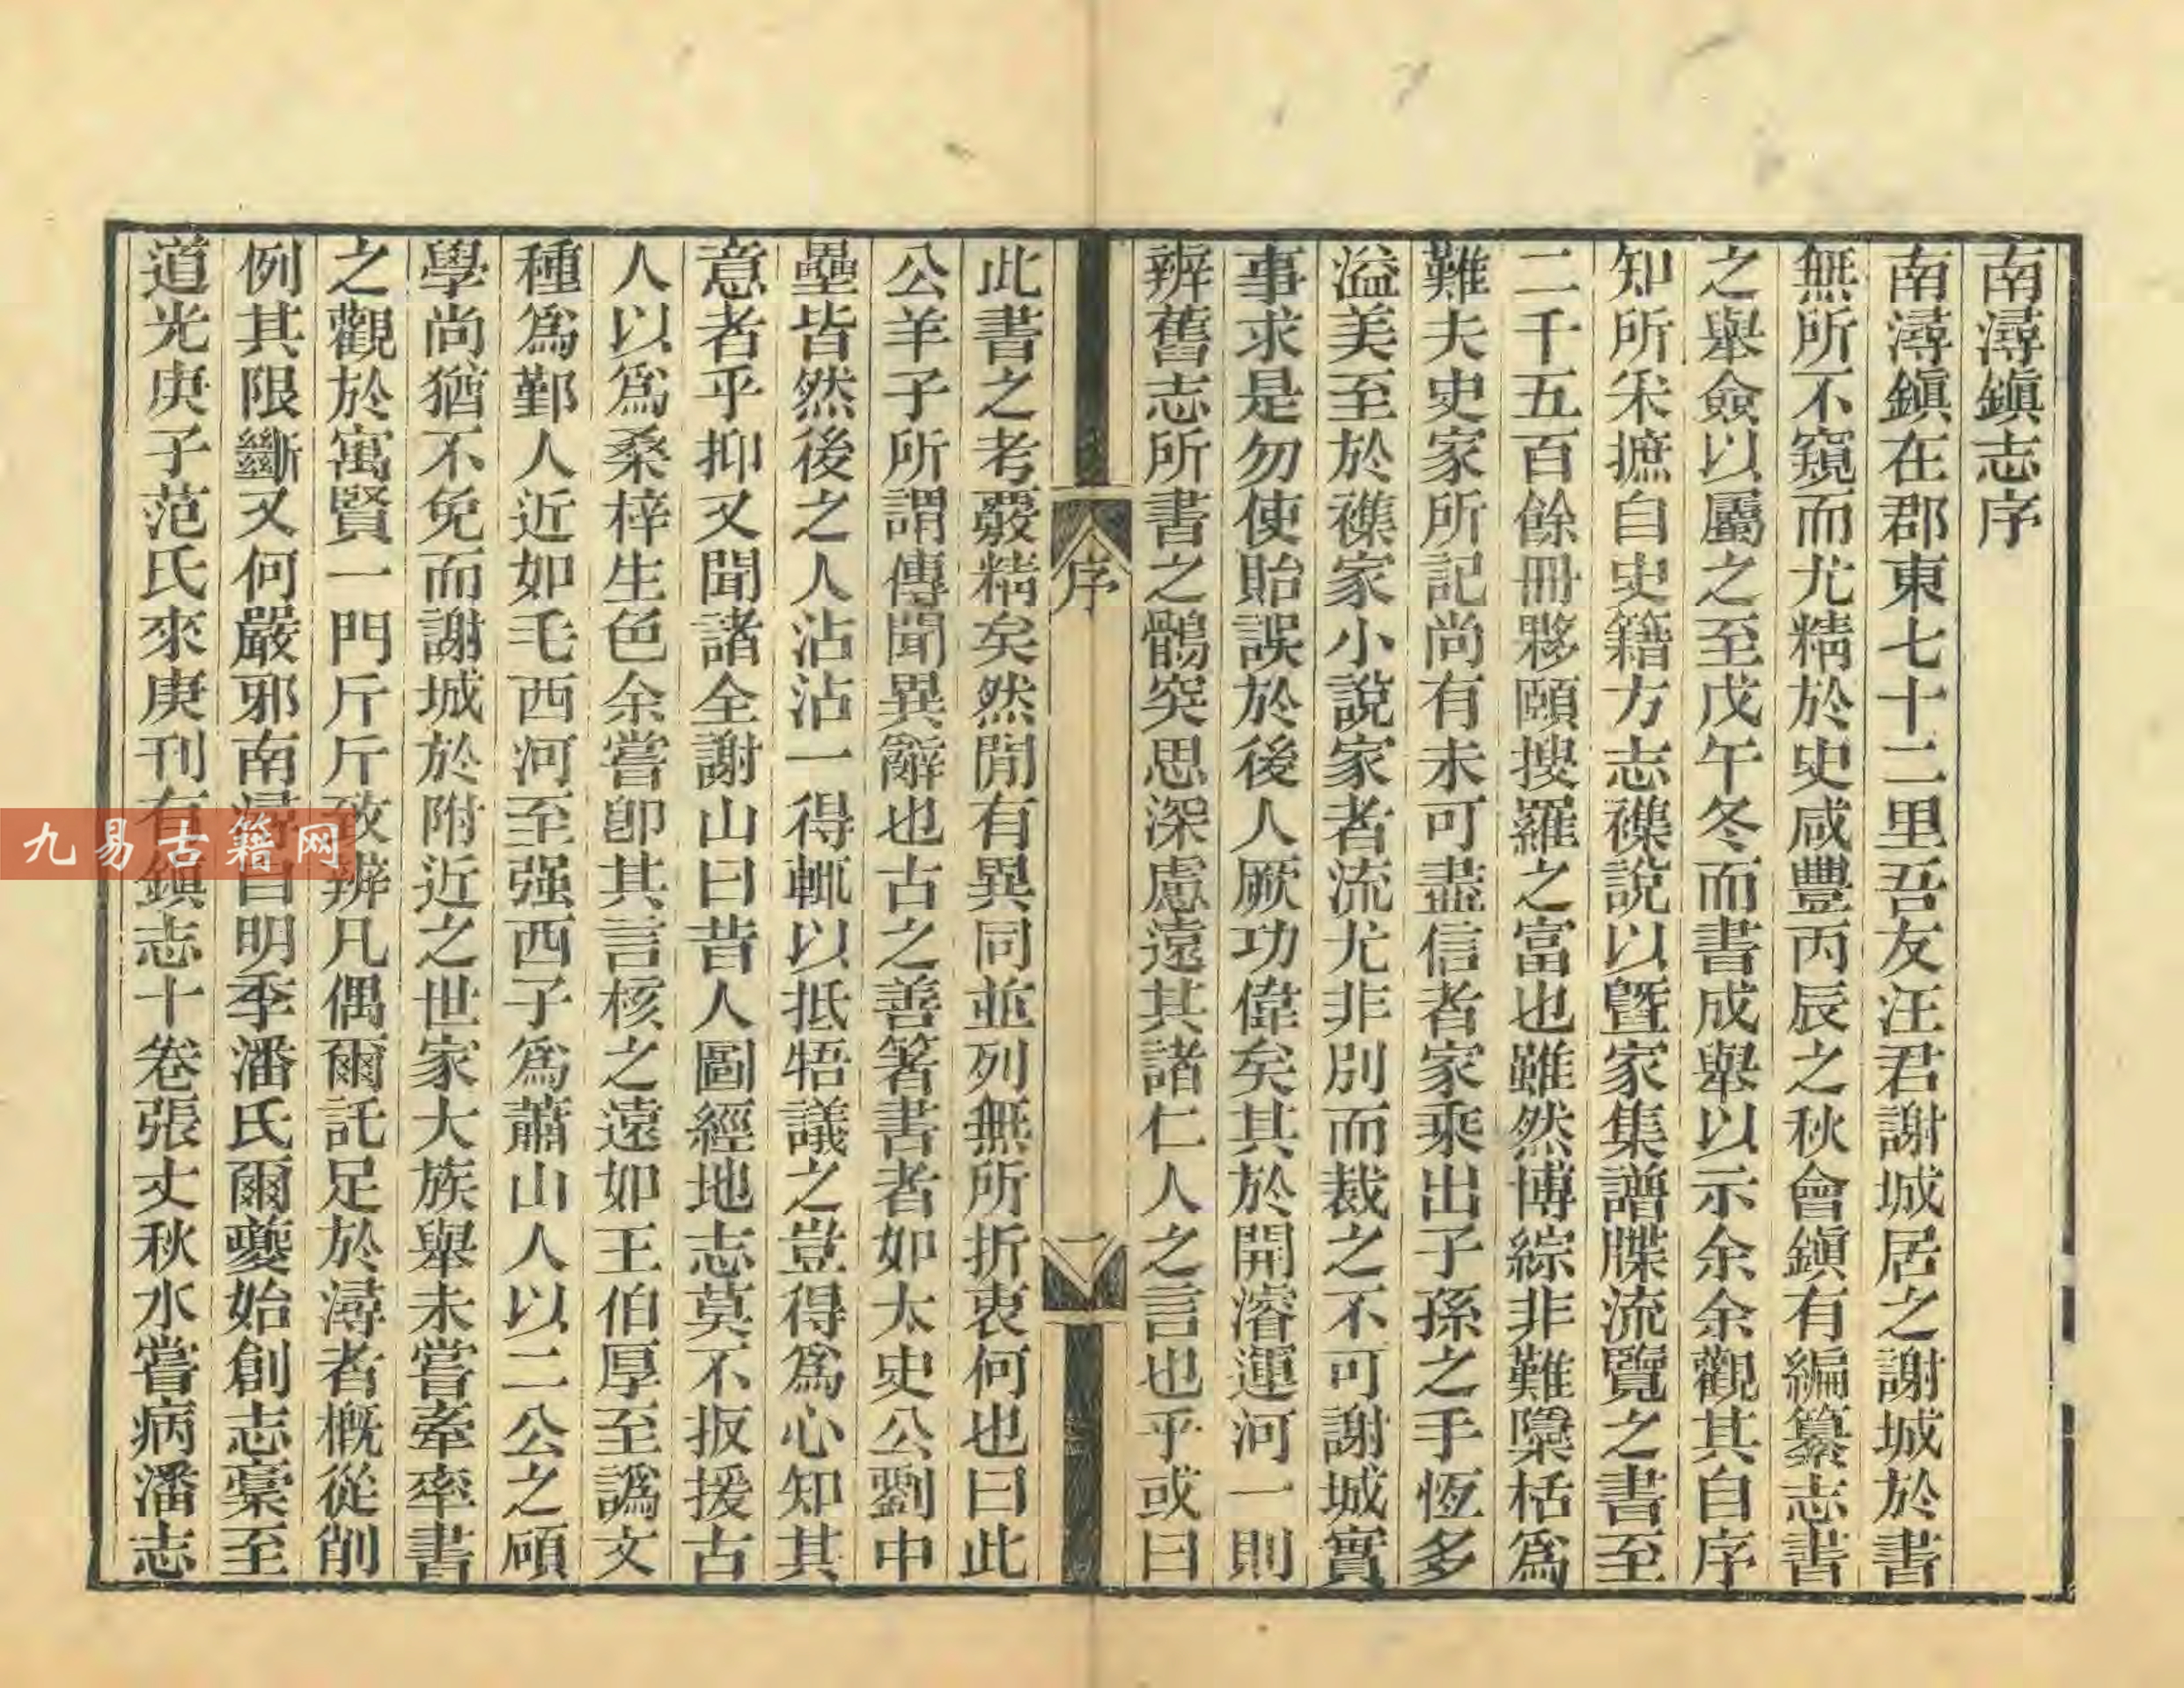 南潯鎮志序
南潯鎮在郡東七十二里吾友汪君謝城居之謝城於書
無所不窺而尤精於史咸豐丙辰之秋會鎮有編纂志書
之舉僉以屬之至戊午冬而書成舉以示余余觀其自序
知所采摭自史籍方志襍說以暨家集譜牒流覽之書至
二千五百餘冊夥頤搜羅之富也雖然博綜非難檃栝為
難夫史家所記尚有未可盡信者家乘出子孫之手恆多
溢美至於襍家小說家者流尤非別而裁之不可謝城實
事求是勿使貽誤於後人厥功偉矣其於開濬運河一則
辨舊志所書之鶻突思深慮遠其諸仁人之言也乎或曰
序
一
此書之考覈精矣然閒有異同並列無所折衷何也曰此
公羊子所謂傳聞異辭也古之善箸書者如太史公劉中
壘皆然後之人沾沾一得輒以抵牾議之豈得為心知其
意者乎抑又聞諸全謝山曰昔人圖經地志莫不扳援古
人以為桑梓生色余嘗卽其言核之遠如王伯厚至譌文
種為鄞人近如毛西河至强西子為蕭山人以二公之碩
學尚猶不免而謝城於附近之世家大族舉未嘗牽率書
之觀於寓賢一門斤斤致辨凡偶爾託足於潯者概從削
例其限斷又何嚴邪南潯自明季潘氏爾夔始創志稾至
道光庚子范氏來庚刊有鎮志十卷張丈秋水嘗病潘志
九易古籍网